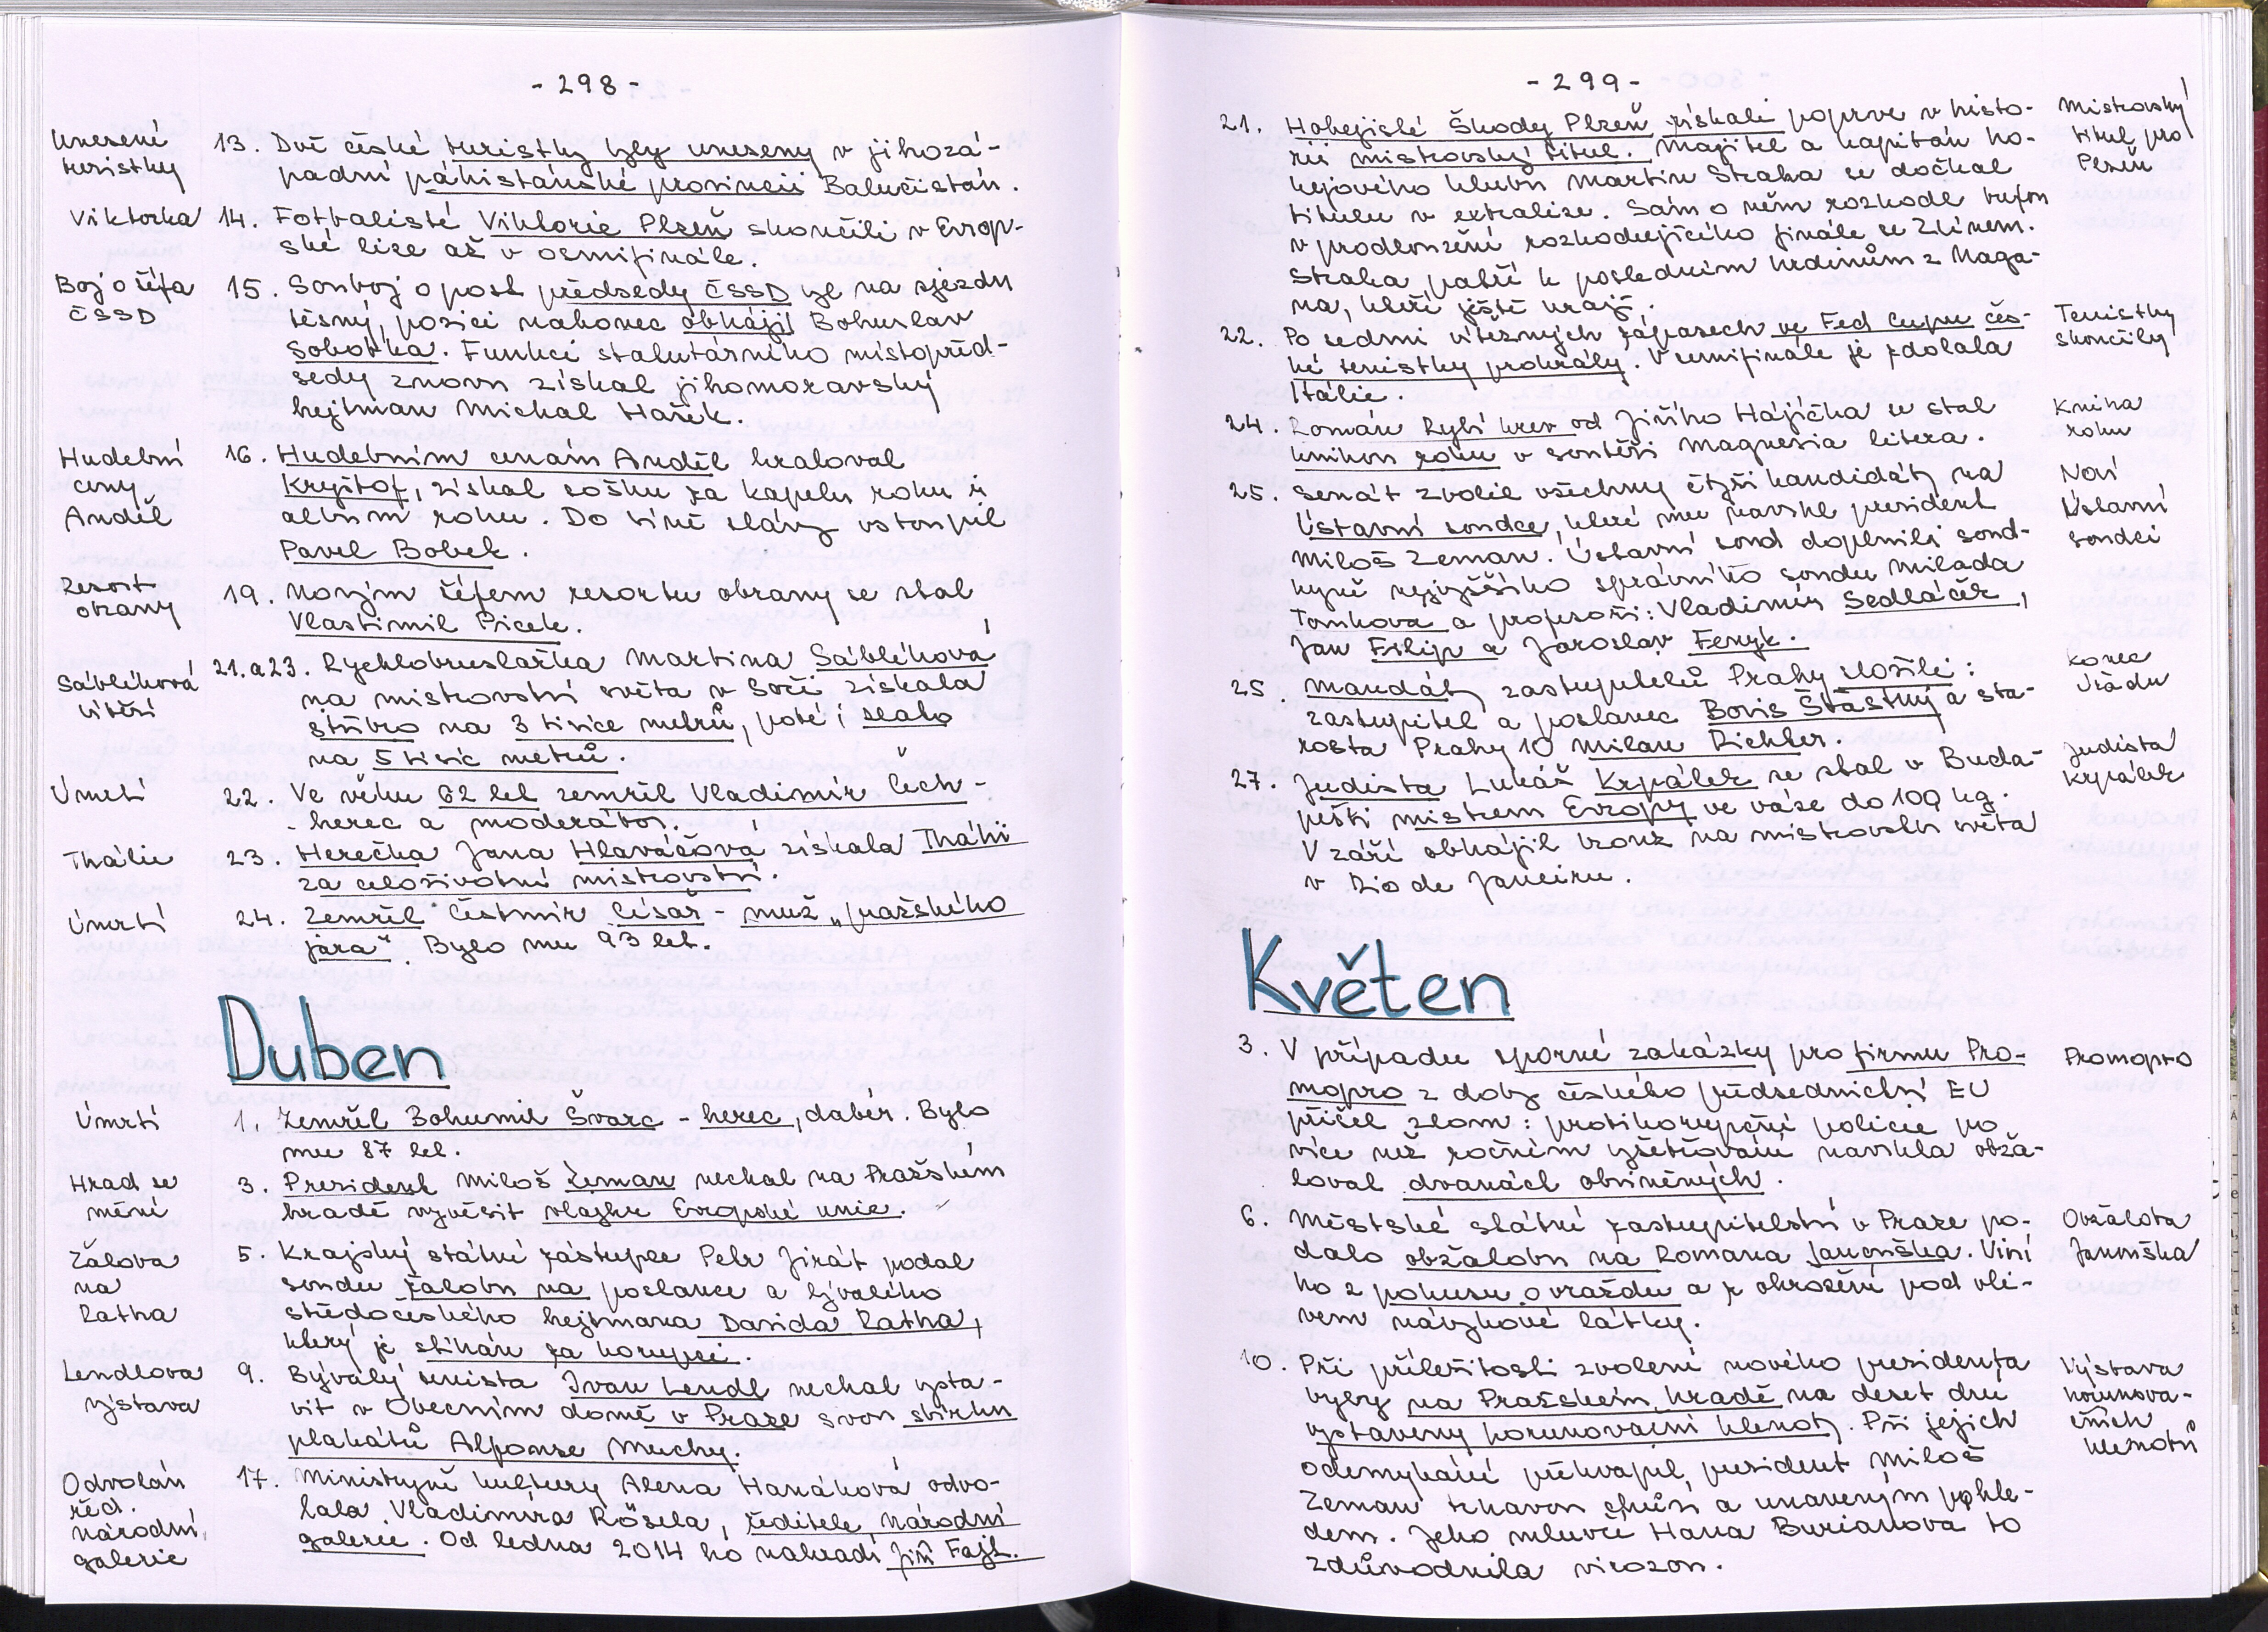 - 298 -
Unesené
turistky
13. Dvě české turistky byly uneseny v jihozá-
padní pákistánské provincii Balučistán.
Viktorka
14. Fotbalisté Viktorie Plzeň skončili v Evrop-
ské lize až v osmifinále.
Boj o šéfa
ČSSD
15. Souboj o post předsedy ČSSD byl na sjezdu
těsný, pozici nakonec obhájil Bohuslav
Sobotka. Funkci statutárního místopřed-
sedy znovu získal jihomoravský
hejtman Michal Hašek.
Hudební
ceny
Anděl
16. Hudebním cenám Anděl kraloval
Kryštof, získal sošku za kapelu roku i
album roku. Do síně slávy vstoupil
Pavel Bobek.
Resort
obrany
19. Novým šéfem resortu obrany se stal
Vlastimil Picek.
Sáblíková
vítězí
21. a 23. Rychlobruslařka Martina Sáblíková
na mistrovství světa v Soči získala
stříbro na 3 tisíce metrů, poté i zlato
na 5 tisíc metrů.
Úmrtí
22. Ve věku 62 let zemřel Vladimír Čech -
- herec a moderátor.
Thálie
23. Herečka Jana Hlaváčová získala Thálii
za celoživotní mistrovství.
Úmrtí
24. Zemřel Čestmír Císař - muž „pražského
jara“. Bylo mu 93 let.
Duben
Úmrtí
1. Zemřel Bohumil Švarc - herec, dabér. Bylo
mu 87 let.
Hrad se
mění
3. President Miloš Zeman nechal na Pražském
hradě vyvěsit vlajku Evropské unie.
Žaloba
na
Ratha
5. Krajský státní zástupce Petr Jirát podal
soudu žalobu na poslance a bývalého
středočeského hejtmana Davida Ratha,
který je stíhán za korupci.
Lendlova
výstava
9. Bývalý tenista Ivan Lendl nechal vysta-
vit v Obecním domě v Praze svou sbírku
plakátů Alfonse Muchy.
Odvolán
řed.
národní
galerie
17. Ministryně kultury Alena Hanáková odvo-
lala Vladimíra Rösela, ředitele národní
galerie. Od ledna 2014 ho nahradí Jiří Fajt.
- 299 -
21. Hokejisté Škody Plzeň získali poprve v histo-
rii mistrovský titul. Majitel a kapitán ho-
kejového klubu Martin Straka se dočkal
titulu v extralize. Sám o něm rozhodl trefou
v prodloužení rozhodujícího finále se Zlínem.
Straka patří k posledním hrdinům z Naga-
na, kteří ještě hrají.
Mistrovský
titul pro
Plzeň
22. Po sedmi vítězných zápasech ve Fed Cupu čes-
ké tenistky prohrály. V semifinále je zdolala
Itálie.
Tenistky
skončily
24. Román Rybí krev od Jiřího Hájíčka se stal
knihou roku v soutěži Magnesia litera.
Kniha
roku
25. Senát zvolil všechny čtyři kandidáty na
Ústavní soudce, které mu navrhl president
Miloš Zeman. Ústavní soud doplnili soud-
kyně nejvyššího správního soudu Milada
Tomková a profesoři: Vladimír Sedláček,
Jan Filip a Jaroslav Fenyk.
Noví
Ústavní
soudci
25. Mandáty zastupitelů Prahy složili:
zastupitel a poslanec Boris Šťastný a sta-
rosta Prahy 10 Milan Richter.
Konec
úřadu
27. Judista Lukáš Krpálek se stal v Buda-
pešti mistrem Evropy ve váze do 100 kg.
V září obhájil bronz na mistrovství světa
v Rio de Janeiru.
Judista
Krpálek
Květen
3. V případu sporné zakázky pro firmu Pro-
mopro z doby českého předsednictví EU
přišel zlom: protikorupční policie po
více než ročním vyšetřování navrhla obža-
loval dvanáct obviněných.
Promopro
6. Městské státní zastupitelství v Praze po-
dalo obžalobu na Romana Janouška. Viní
ho z pokusu o vraždu a z ohrožení pod vli-
vem návykové látky.
Obžaloba
Janouška
10. Při příležitosti zvolení nového presidenta
byly na Pražském hradě na deset dnů
vystaveny korunovační klenoty. Při jejich
odemykání překvapil president Miloš
Zeman trhavou chůzí a unaveným pohle-
dem. Jeho mluvčí Hana Burianová to
zdůvodnila virózou.
Výstava
korunova-
čních
klenotů